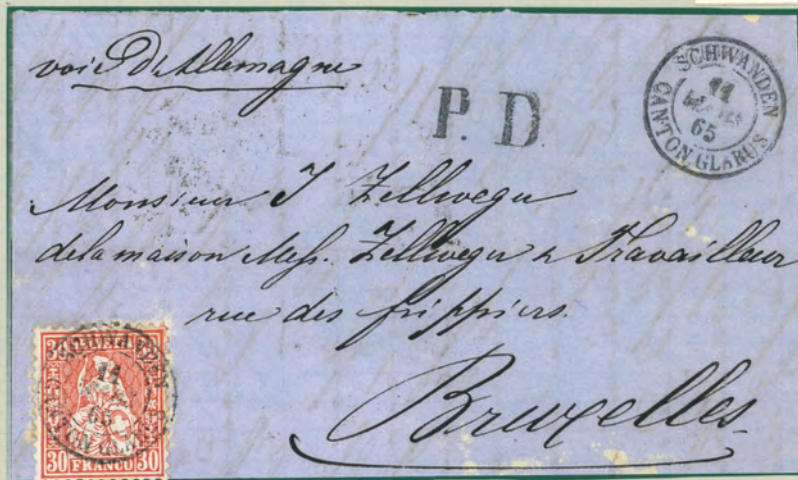 voie d'Allemagne
P.D.
SCHWANDEN
11
65
CANTON GLARUS
Monsieur J Zellweger
de la maison Mess. Zellweger & Travailleur
rue des frippiers.
Bruxelles
SCHWANDEN
11
65
CANTON GLARUS
30 FRANCO 30